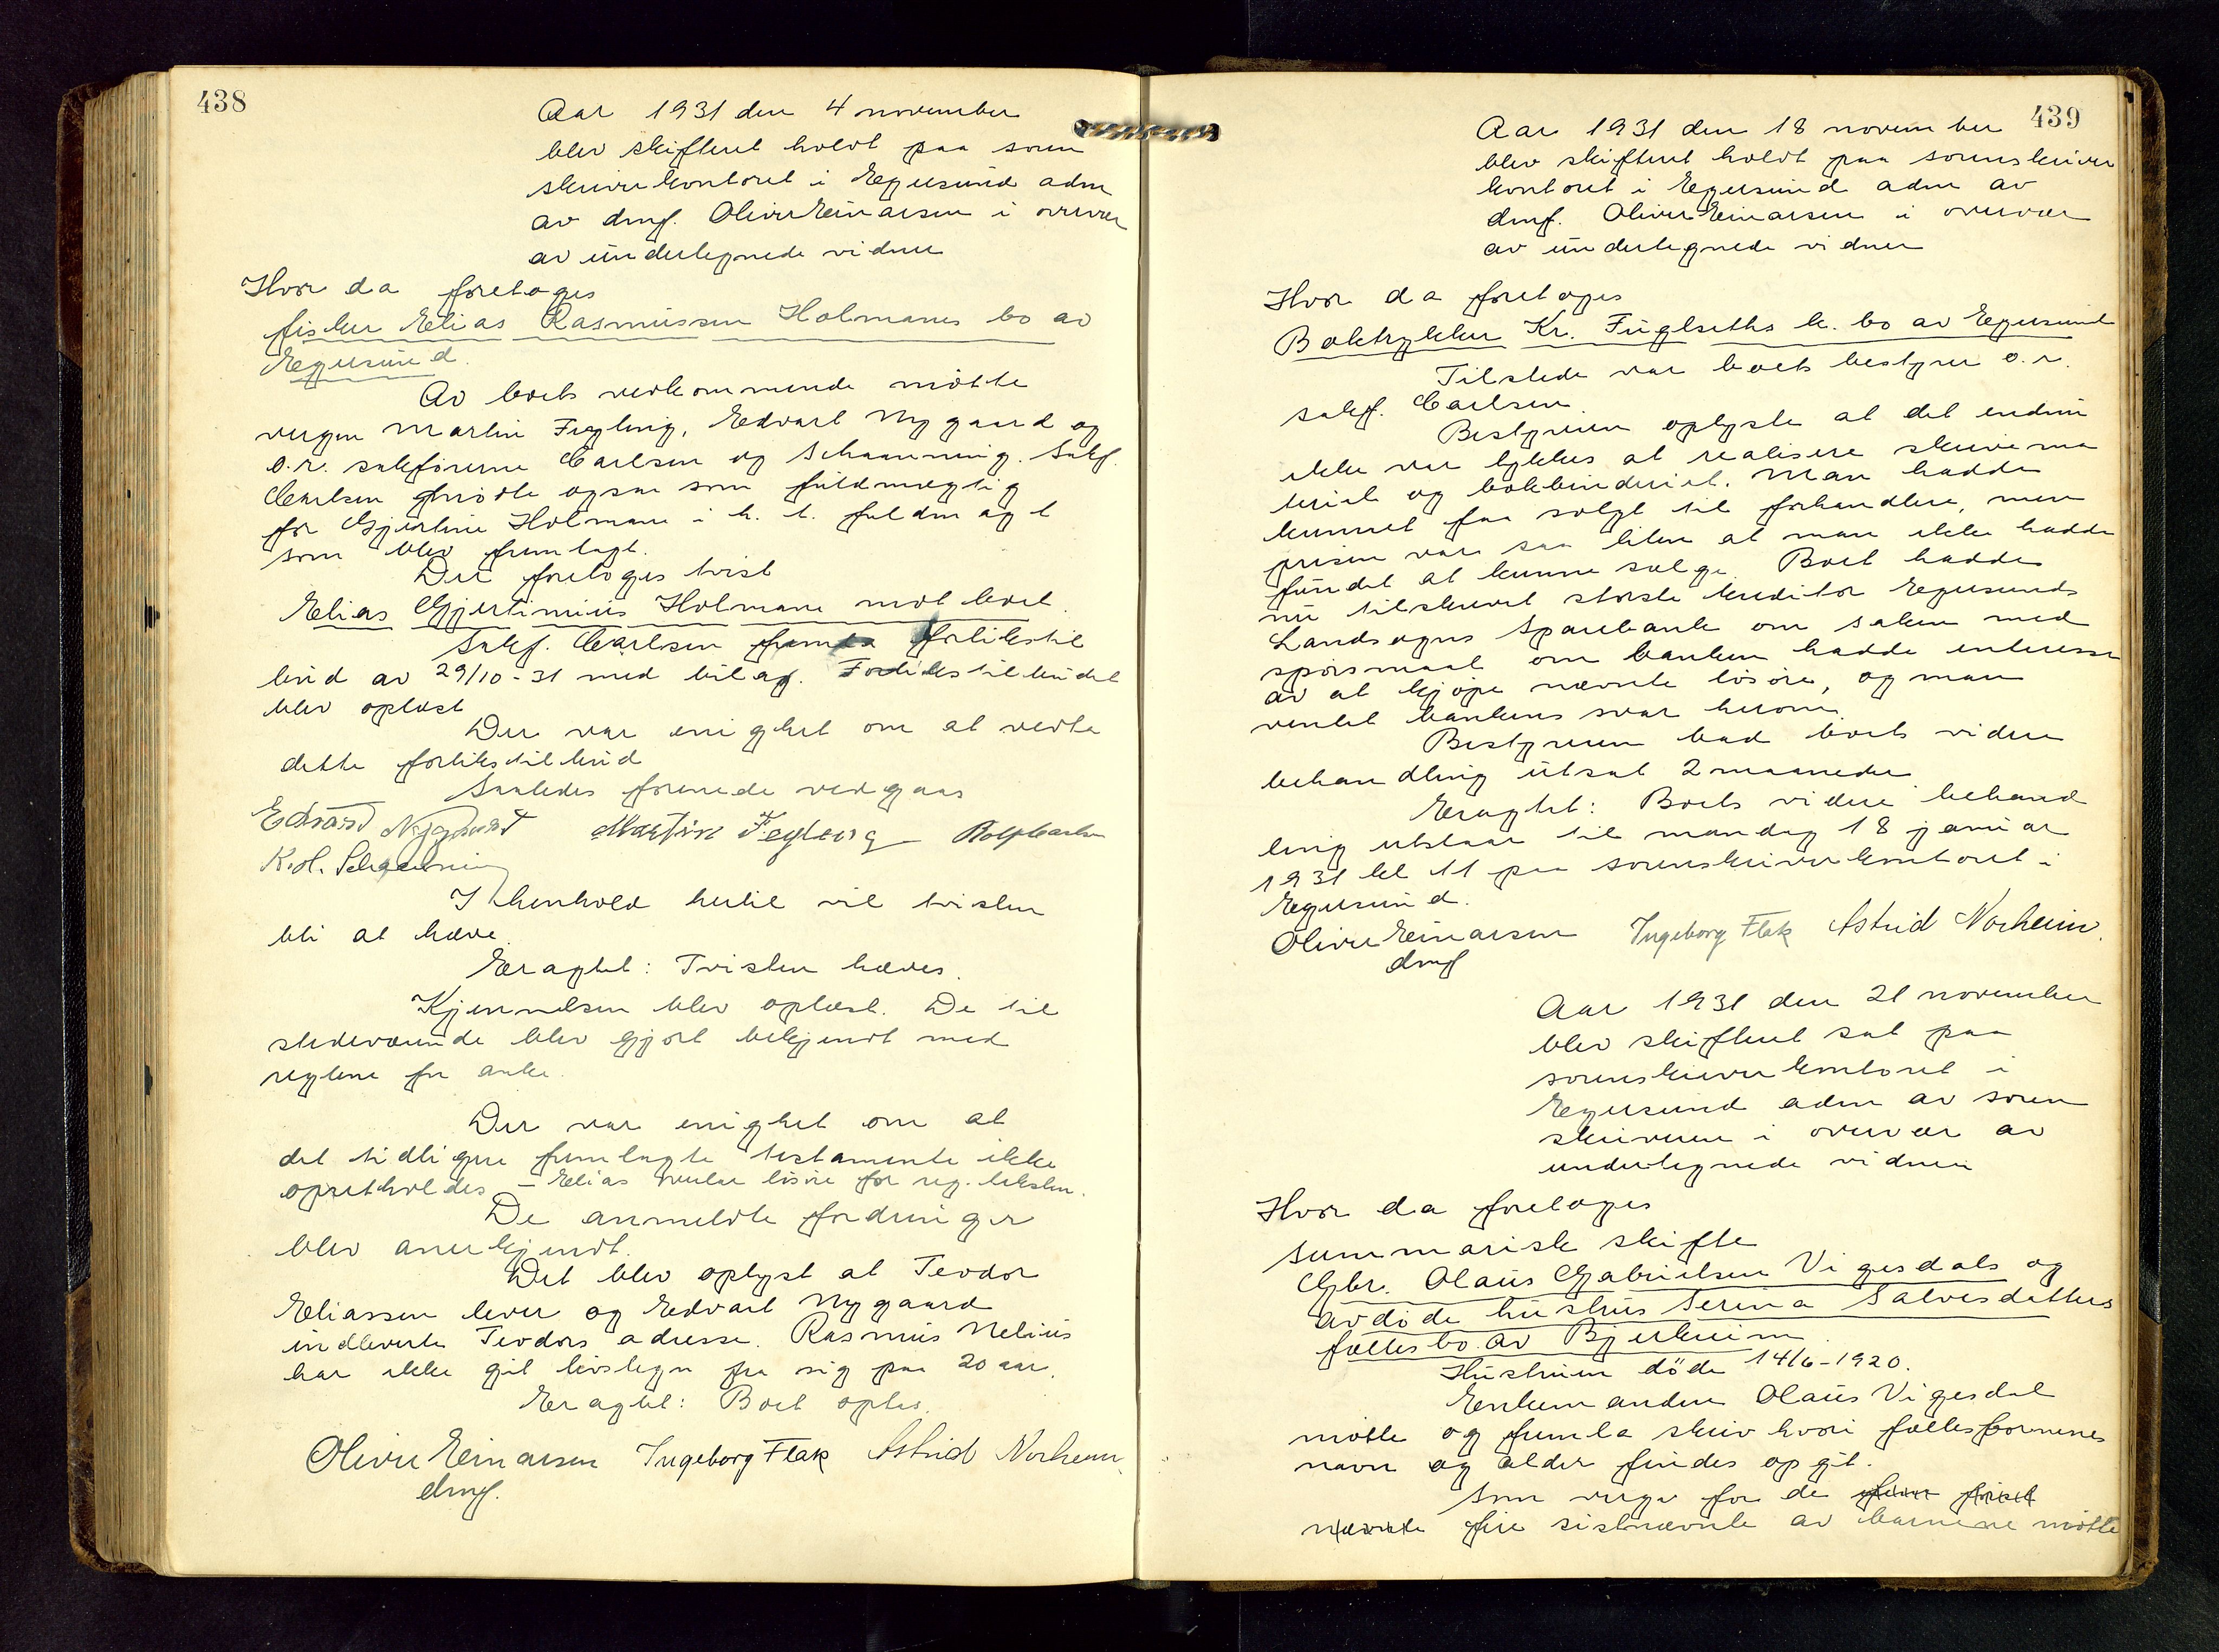 438
Aar 1931 den 4 november
blev skifteret holdt paa soren
skriverkontoret i Egersund adm
av dmf. Oliver Einarsen i overvær
av undertegnede vidner
Hvor da foretoges
fisker Elias Rasmussen Holmanes bo av
Egersund.
Av boets vedkommende møtte
vergen Martin Fugleng, Edvart Nygaard og
o.r. sakførerne Carlsen og Schanning. Sakf.
Carlsen møtte ogsaa som fuldmægtig
for Gjertine Holmane i h. t. fuldmagt
som blev fremlagt.
Der foretoges tvist
Elias Gjertinius Holmane mot boet.
Sakf. Carlsen fremla forlikstil
bud av 29/10-31 med bilag. Forlikstilbudet
blev oplæst
Der var enighet om at vedta
dette forlikstilbud
Saaledes forenede vedgaas
Edvard Nygaard Martin Feyling Rolf Carlsen
K. H. Schanning
I henhold hertil vil tvisten
bli at hæve.
Eragtet: Tvisten hæves.
Kjennelsen blev oplæst. De til
stedeværende blev gjort bekjendt med
reglene for anke.
Der var enighet om at
det tidligere fremlagte testamente ikke
opretholdes – Elias løsøre for reg.
De anmeldte fordringer
blev anerkjendt.
Det blev oplyst at Teodor
Eliassen lever og Edvart Nygaard
indleverte Teodors adresse. Rasmus Nelius
har ikke git livstegn fra sig paa 20 aar.
Eragtet: Boet optes.
Oliver Einarsen Ingeborg Flak Astrid Norheim
dmf.
439
Aar 1931 den 18 november
blev skifteret holdt paa sorenskriver
kontoret i Egersund adm av
dmf. Oliver Einarsen i overvær
av undertegnede vidner
Hvor da foretoges
Boktrykker Kr. Fuglseths k. bo av Egersund
Tilstede var boets bestyrer o.r.
sakf. Carlsen.
Bestyreren oplyste at det endnu
ikke var lykkes at realisere skrivema
teriel og bokbinderiet. Man hadde
kunnet faa solgt til forhandlere, men
prisen var saa liten at man ikke hadde
fundet at kunne sælge. Boet hadde
nu tilskrevet største kreditor Egersunds
Landsogns Sparebank om saken med
spørsmaal om banken hadde interesse
av at kjøpe nævnte løsøre, og man
ventet bankens svar herom.
Bestyreren bad boets videre
behandling utsat 2 maaneder
Eragtet: Boets videre behand
ling utstaar til mandag 18 januar
1931 kl 11 paa sorenskriverkontoret i
Egersund.
Oliver Einarsen Ingeborg Flak Astrid Norheim.
dmf
Aar 1931 den 21 november
blev skifteret sat paa
sorenskriverkontoret i
Egersund adm av soren
skriveren i overvær av
undertegnede vidner
Hvor da foretoges
summarisk skifte
Gbr. Olaus Gabrielsen Vigesdals og
avdøde hustrus Serina Salvesdatters
fællesbo av Bjerkreim.
Hustruen døde 14/6-1920.
Enkemanden Olaus Vigesdal
møtte og fremla skriv hvori fællesbarnenes
navn og alder findes opgit.
Som verge for de først
nævnte fire sistnævnte av barnene møtte